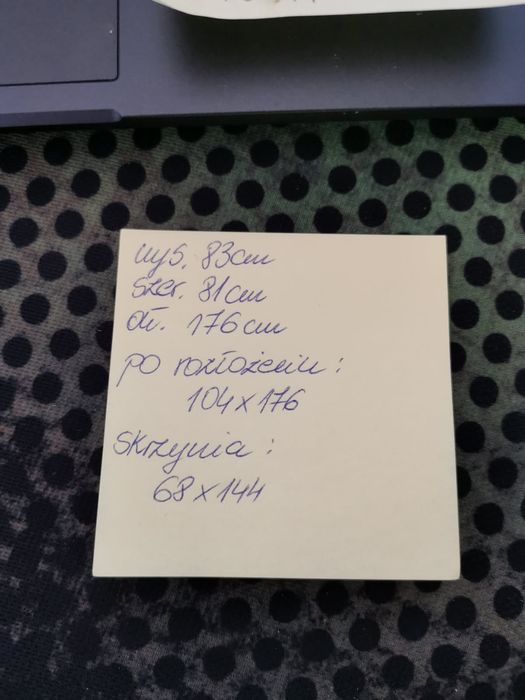 wys. 83cm
szer. 81cm
dł. 176cm
po rozłożeniu :
104 x 176
Skrzynia :
68 x 144